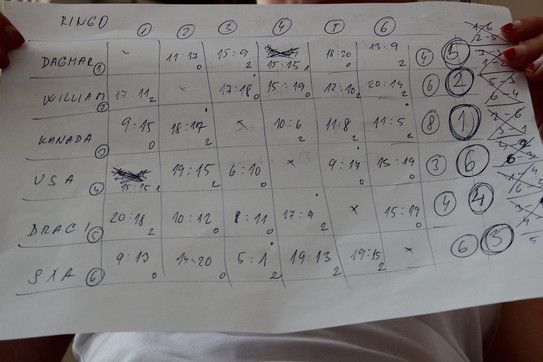 RINGO 1 2 3 4 5 6
DAGMAR 1 - 11:17 0 15:9 2 15:15 1 18:20 0 13:9 2 4 5
WILLIAM 2 17:11 2 × 17:18 0 15:19 0 12:10 2 20:14 2 6 2
KANADA 3 9:15 0 18:17 2 × 10:6 2 11:8 2 11:5 2 8 1
USA 4 15:15 1 19:15 2 6:10 0 × 9:17 0 15:19 0 3 6
DRACI 5 20:18 2 10:12 0 8:11 0 17:9 2 × 15:19 0 4 4
SXA 6 9:13 0 14:20 0 5:1 2 19:13 2 19:15 2 × 6 3